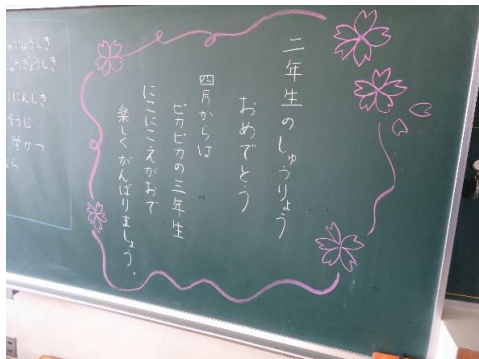 二年生のしゅうりょう
おめでとう
四月からは
ピカピカの三年生
にこにこえがおで
楽しくがんばりましょう。